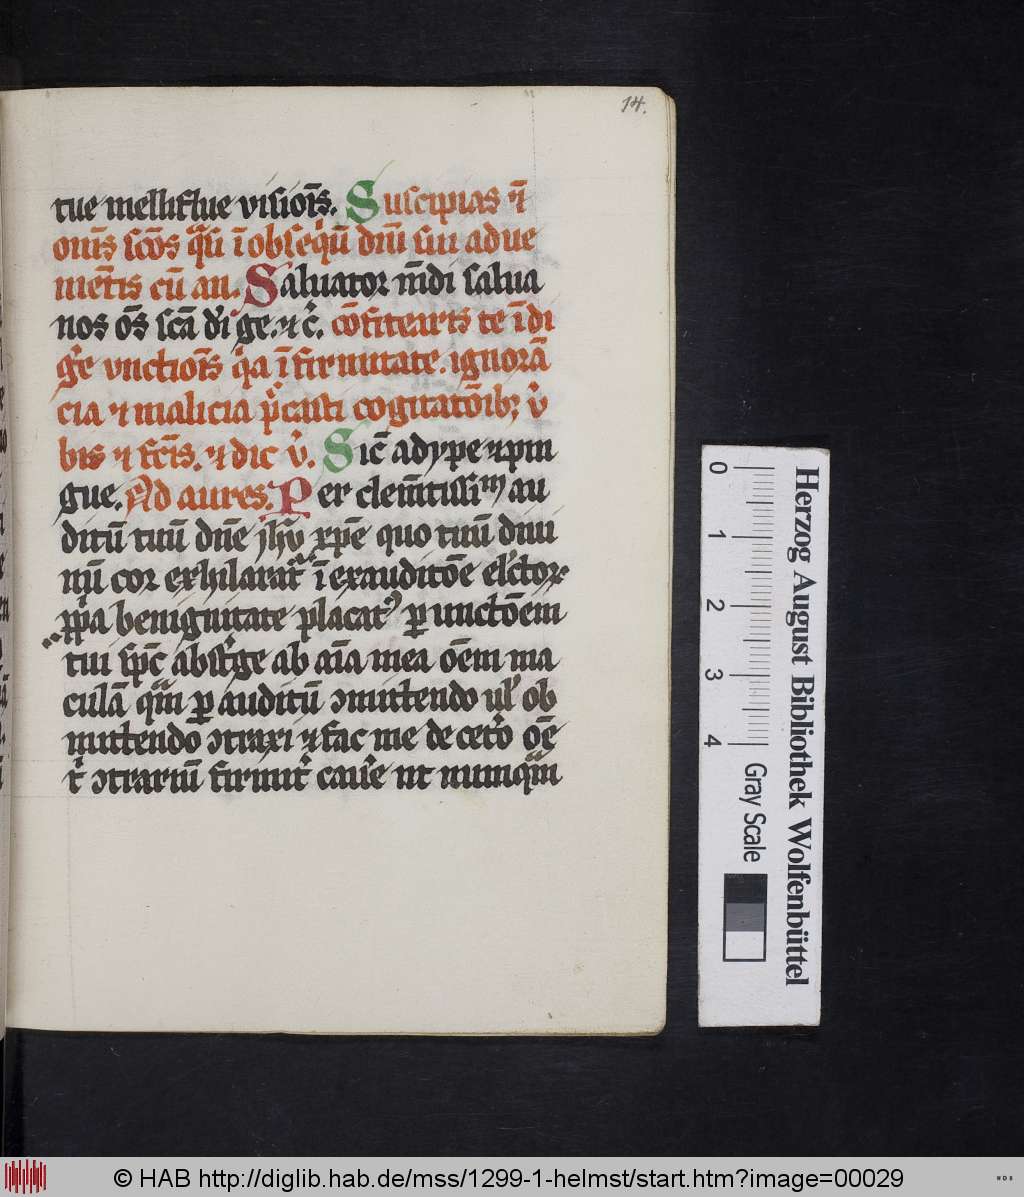 14.
tue melliflue visiōis. Suscipias et̄
om̄s sc̄os q̄si ī obseq̄ū dn̄i sui adue
niēt̄is cū an. Saluator m̄di salua
nos om̄s scā dei ge. et c̄. cōfitearis te īdi
g̅e unctiōis q̇a ī firmitate. ignorā
cia et malicia p̄casti cogitatōib; v̄
bis et fc̄is. et dic v̄. Sic̄ adype et pin
gue. Ad aures. Per clem̄tissim au
ditū tuū dn̄e jhū xp̄e quo tuū diui
nū cor exhilarat̄ ī exauditōe el̄ctor
ꝓp̄a benignitate placat᷒ ꝑ unctōem
tui sp̄c abst̄ge ab aīa mea ōem ma
culā qm̄ ꝑ auditū ɔmittendo ul̄ ob
mittendo ɔtraxi et fac me de cet̄o oē
t̄ ɔtrariū firmit̄ cau̅e ut numqm̄
Herzog August Bibliothek Wolfenbüttel
0 1 2 3 4
Gray Scale
© HAB http://diglib.hab.de/mss/1299-1-helmst/start.htm?image=00029